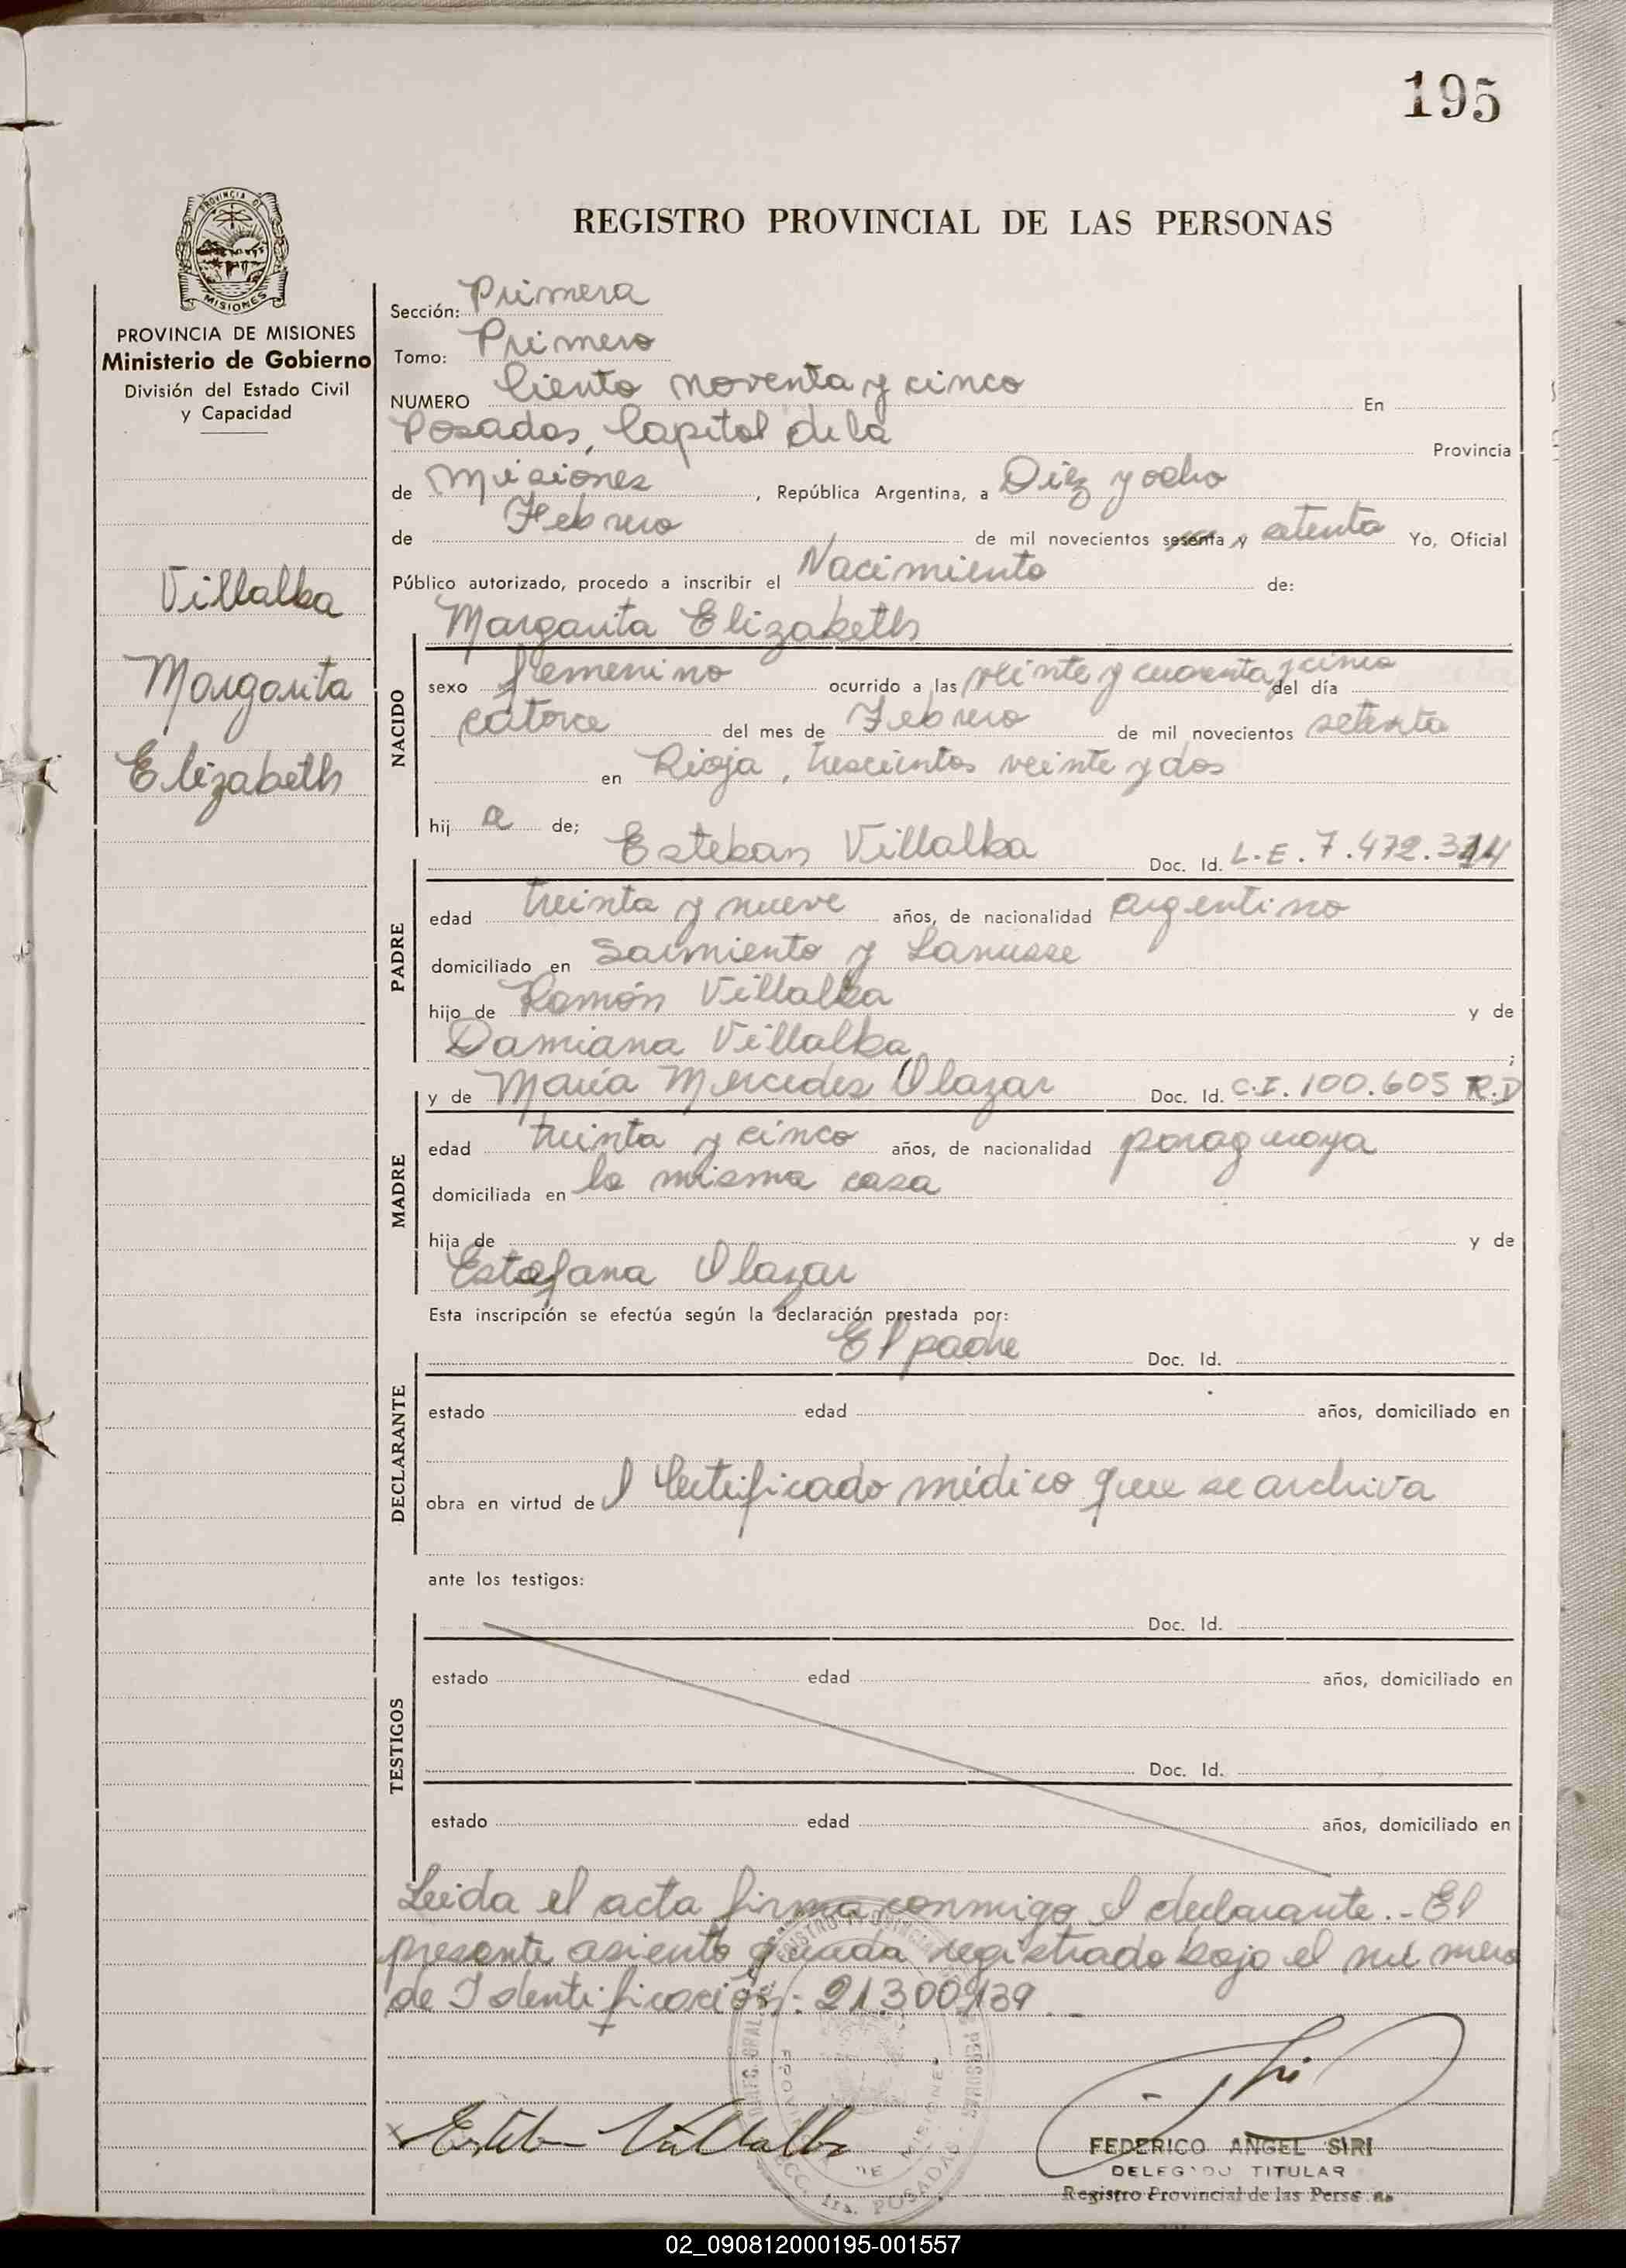 195
PROVINCIA DE MISIONES
REGISTRO PROVINCIAL DE LAS PERSONAS
PROVINCIA DE MISIONES
Ministerio de Gobierno
División del Estado Civil
y Capacidad
Villalba
Margarita
Elizabeth
Sección: Primera
Tomo: Primero
NUMERO Ciento noventa y cinco En
Posadas, Capital de la Provincia
de Misiones, República Argentina, a Diez y ocho
de Febrero de mil novecientos sesenta y setenta Yo, Oficial
Público autorizado, procedo a inscribir el Nacimiento de:
Margarita Elizabeth
NACIDO
sexo femenino ocurrido a las veinte y cuarenta y cinco del día
catorce del mes de Febrero de mil novecientos setenta
en Rioja, trescientos veinte y dos
hij a de;
Esteban Villalba Doc. Id. L.E. 7.472.314
PADRE
edad treinta y nueve años, de nacionalidad argentino
domiciliado en Sarmiento y Lanusse
hijo de Ramón Villalba y de
Damiana Villalba ;
y de María Mercedes Olazar Doc. Id. C.I. 100.605 R.P
MADRE
edad treinta y cinco años, de nacionalidad paraguaya
domiciliada en la misma casa
hija de y de
Estefana Olazar
Esta inscripción se efectúa según la declaración prestada por:
El padre Doc. Id.
DECLARANTE
estado edad años, domiciliado en
obra en virtud del Certificado médico que se archiva
ante los testigos:
Doc. Id.
TESTIGOS
estado edad años, domiciliado en
Doc. Id.
estado edad años, domiciliado en
Leida el acta firma conmigo el declarante.- El
presente asiento queda registrado bajo el número
de Identificación: 21.300.139.-
Esteban Villalba
FEDERICO ANGEL SIRI
DELEGADO TITULAR
Registro Provincial de las Personas
02_090812000195-001557